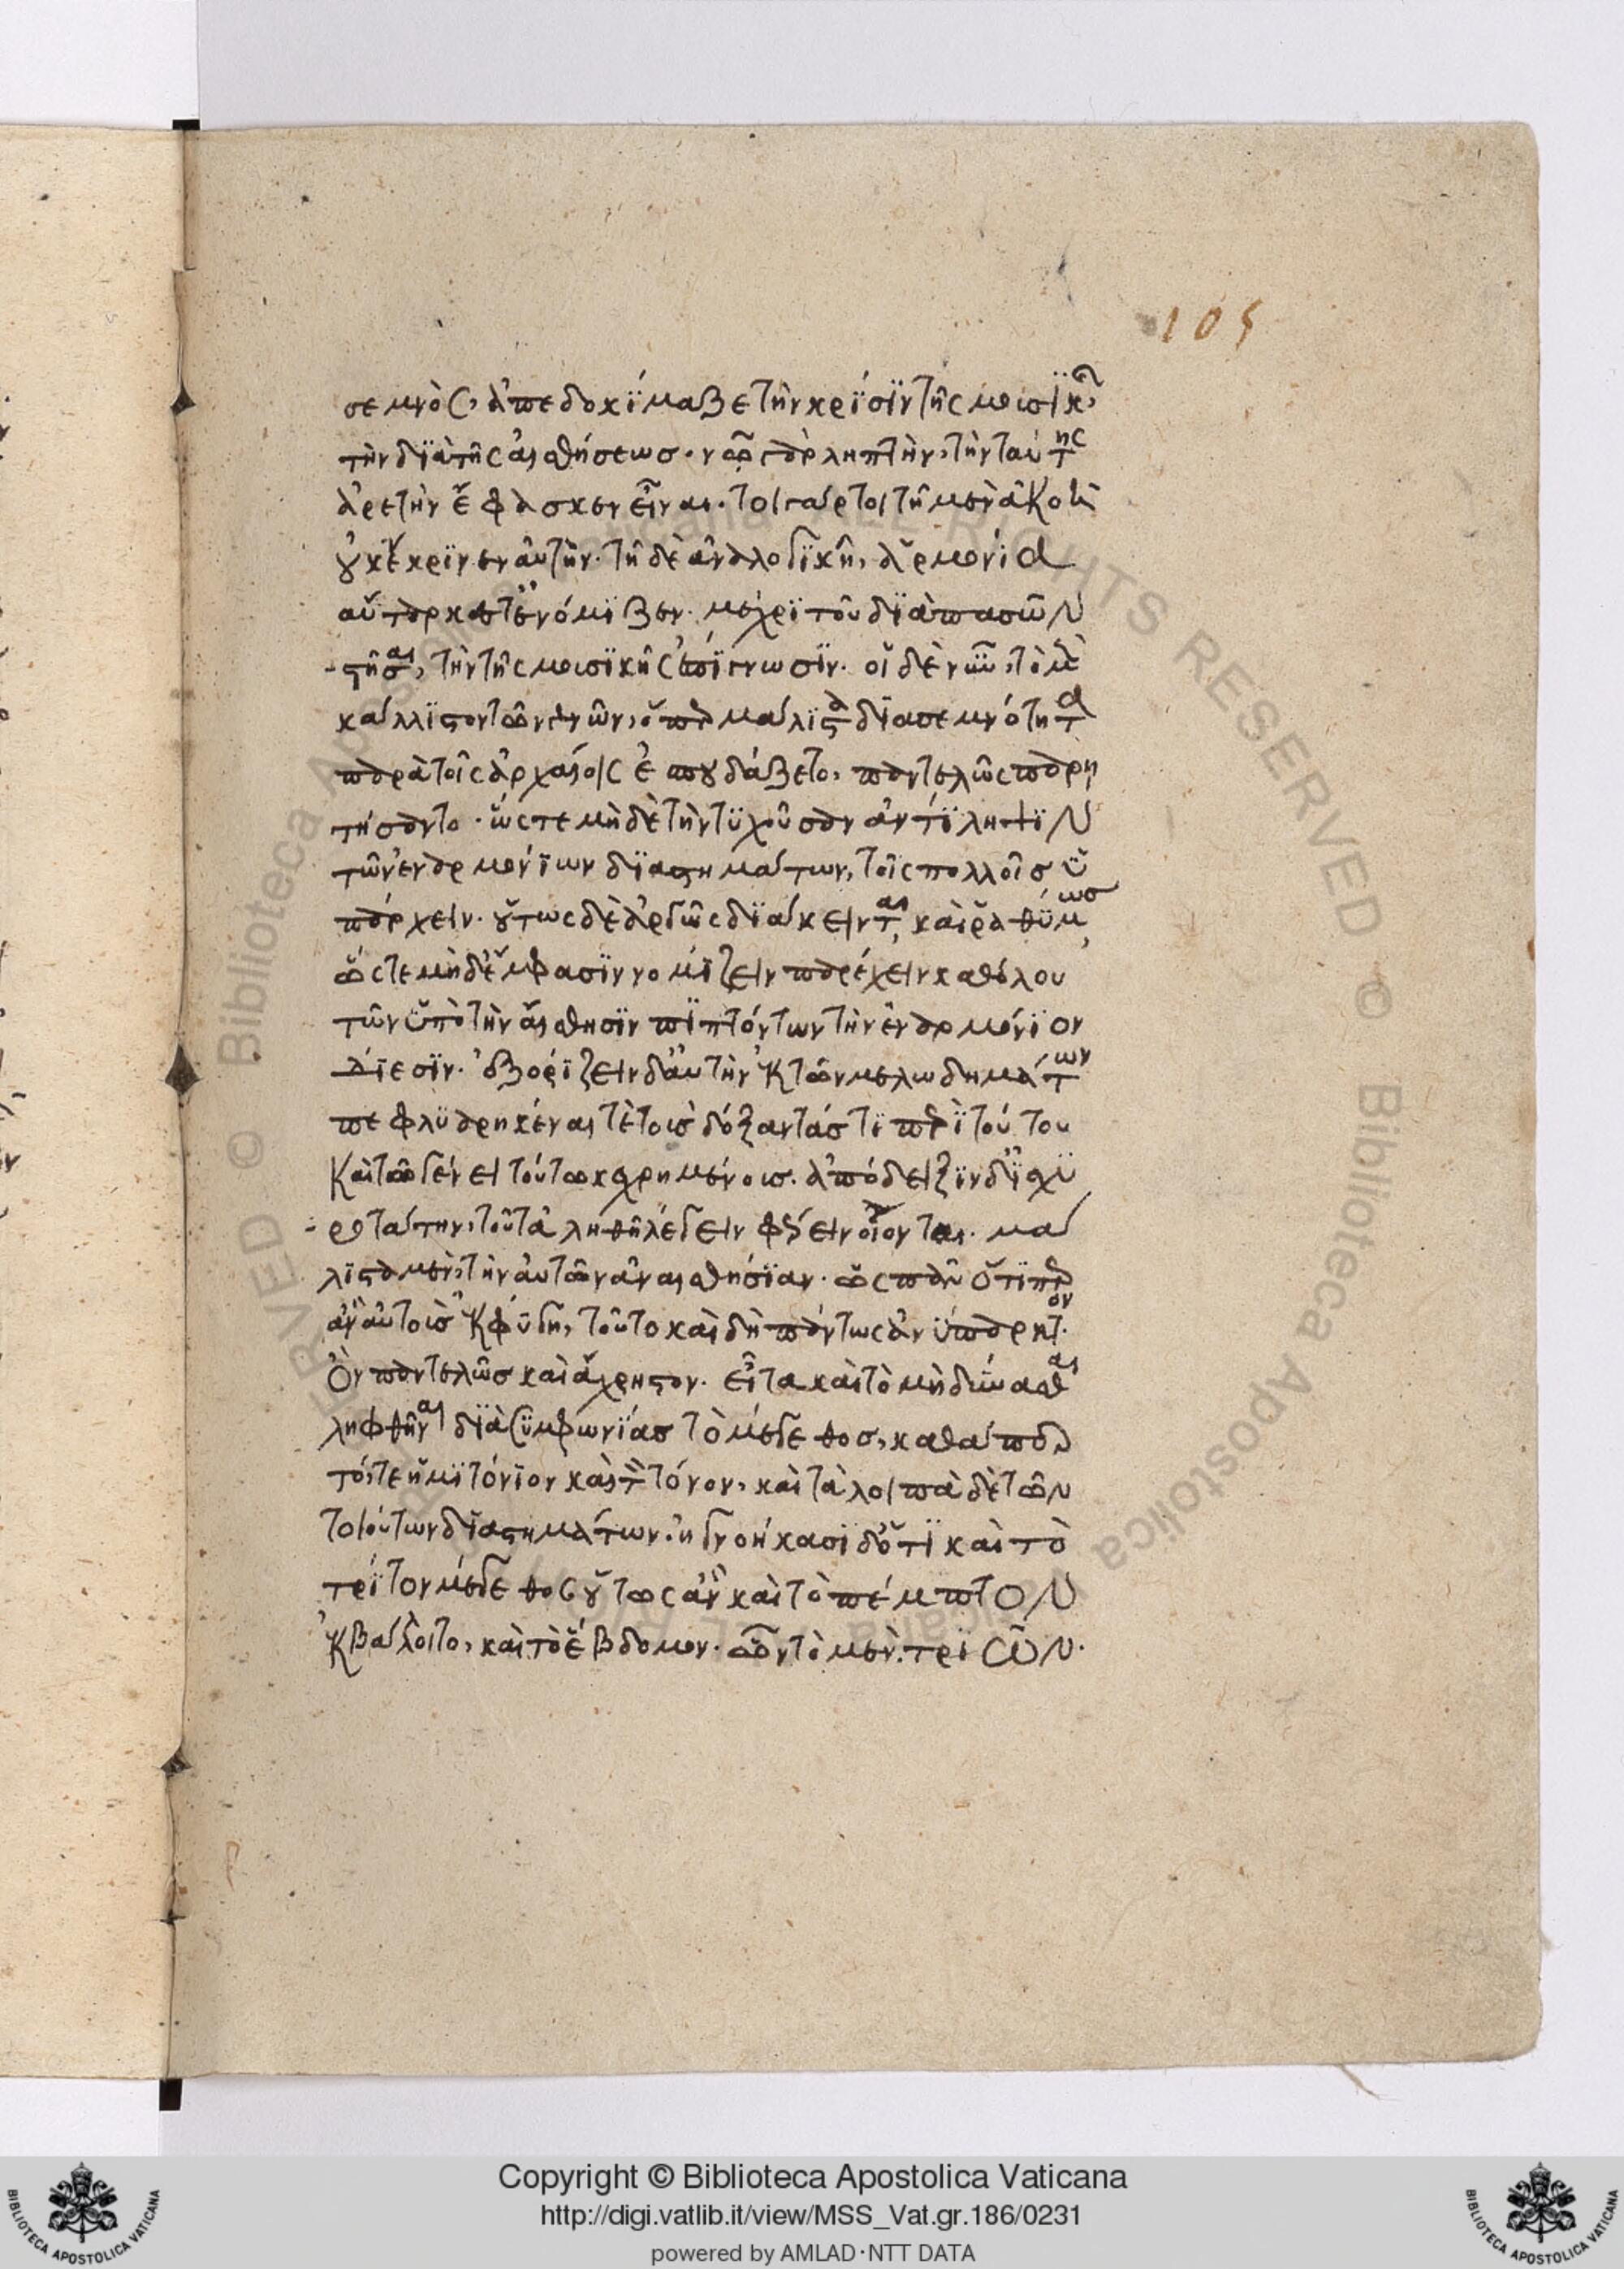 105
σεμνὸς, ἀπεδοκίμαζε τὴν κρίσιν τῆς μουσικῆς
τὴν διὰ τῆς αἰσθήσεως. νῷ γὰρ ληπτὴν, τὴν ταύτης
ἀρετὴν ἔφασκεν εἶναι. τοιγάρτοι τῇ μὲν ἀκοῇ
οὐκ ἔκρινεν αὐτήν. τῇ δὲ ἀναλογικῇ, ἁρμονίᾳ
αὔταρκες τ' ἐνόμιζεν. μέχρι τοῦ διὰ πασῶν
στῆσαι, τὴν τῆς μουσικῆς ἐπίγνωσιν. οἱ δὲ νῦν, τὸ μὲν
κάλλιστον τῶν γενῶν, ὅπερ μάλιστα διὰ σεμνότητα
παρὰ τοῖς ἀρχαίοις ἐσπουδάζετο, παντελῶς παρῃ
τήσαντο. ὥστε μηδὲ τὴν τυχοῦσαν ἀντίληψιν
τῶν ἐναρμονίων διαστημάτων, τοῖς πολλοῖς ὑ
πάρχειν. οὕτως δὲ ἀργῶς διάκεινται, καὶ ῥαθύμως
ὥστε μηδ' ἔμφασιν νομίζειν παρέχειν καθόλου
τῶν ὑπὸ τὴν αἴσθησιν πιπτόντων τὴν ἐναρμόνιον
δίεσιν. ἐξορίζειν δ' αὐτὴν ἐκ τῶν μελωδημάτων
πεφλυαρηκέναι τε τοὺς δόξαντάς τι περὶ τούτου
καὶ τῷ γένει τούτῳ κεχρημένους. ἀπόδειξιν δ' ἰσχυ
ροτάτην, τοῦ τἀληθῆ λέγειν φέρειν οἴονται. μά
λιστα μὲν, τὴν αὑτῶν ἀναισθησίαν. ὡς πᾶν ὅτι περ
ἂν αὐτοὺς ἐκφύγῃ, τοῦτο καὶ δὴ πάντως ἀνύπαρκτον
ὂν παντελῶς καὶ ἄχρηστον. εἶτα καὶ τὸ μὴ δύνασθαι
ληφθῆναι διὰ συμφωνίας τὸ μέγεθος, καθάπερ
τό, τε ἡμιτόνιον καὶ τὸν τόνον, καὶ τὰ λοιπὰ δὲ τῶν
τοιούτων διαστημάτων. ἠγνοήκασι δ' ὅτι καὶ τὸ
τρίτον μέγεθος οὕτως ἂν καὶ τὸ πέμπτον
ἐκβάλοιτο, καὶ τὸ ἕβδομον. ὧν τὸ μὲν. τριῶν.
Copyright © Biblioteca Apostolica Vaticana
http://digi.vatlib.it/view/MSS_Vat.gr.186/0231
powered by AMLAD·NTT DATA